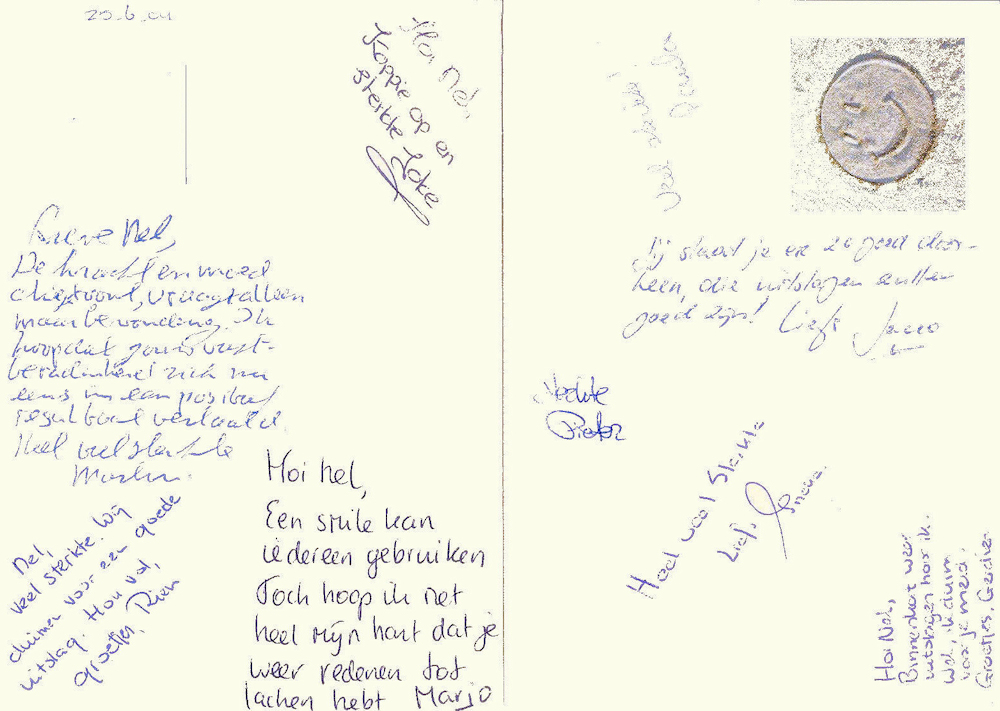 23.6.04
Hoi Nel,
Koppie op en
sterkte Joke
Lieve Nel,
De kracht en moed
die je toont, vraagt alleen
maar bewondering. Ik
hoop dat jouw vast-
beradenheid zich nu
eens in een positief
resultaat vertaald.
Heel veel sterkte
Nel,
Veel sterkte. Wij
duimen voor een goede
uitslag. Hou vol,
groetjes, Rien
Hoi Nel,
Een smile kan
iedereen gebruiken
Toch hoop ik met
heel mijn hart dat je
weer redenen tot
lachen hebt Marjo
Veel sterkte!
Jij slaat je er zo goed door-
heen, die uitslagen zullen
goed zijn! Liefs Jacco
Sterkte
Pieter
Heel veel Sterkte
Liefs
Hoi Nel,
Binnenkort weer
uitslagen hoor ik
wel, ik duim
voor je mee!
Groetjes,